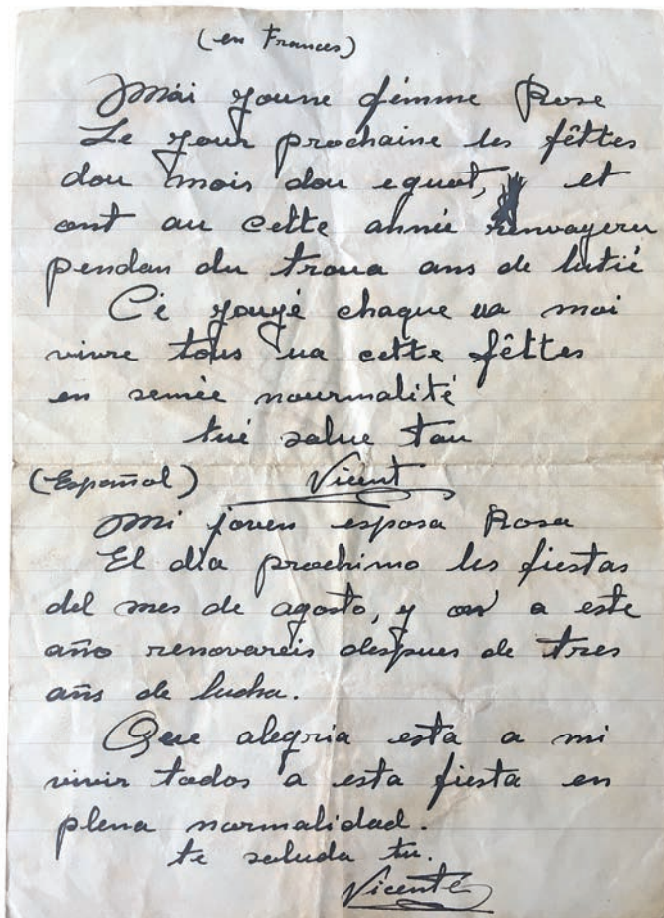 (en Frances)
Mai youne fémme Rose
Le your prochaine les fêttes
dou mois dou equot, et
ont au cette année renvoyeru
pendan du troua ans de lutié
Cé youyé chaque ua moi
vivre tous ua cette fêttes
en semée nourmalité
tué salue tau
Vicent
(Español)
Mi joven esposa Rosa
El día prochimo les fiestas
del mes de agosto, y on a este
año renovareis despues de tres
añs de lucha.
Que alegria esta a mi
vivir todos a esta fiesta en
plena normalidad.
te saluda tu.
Vicenté